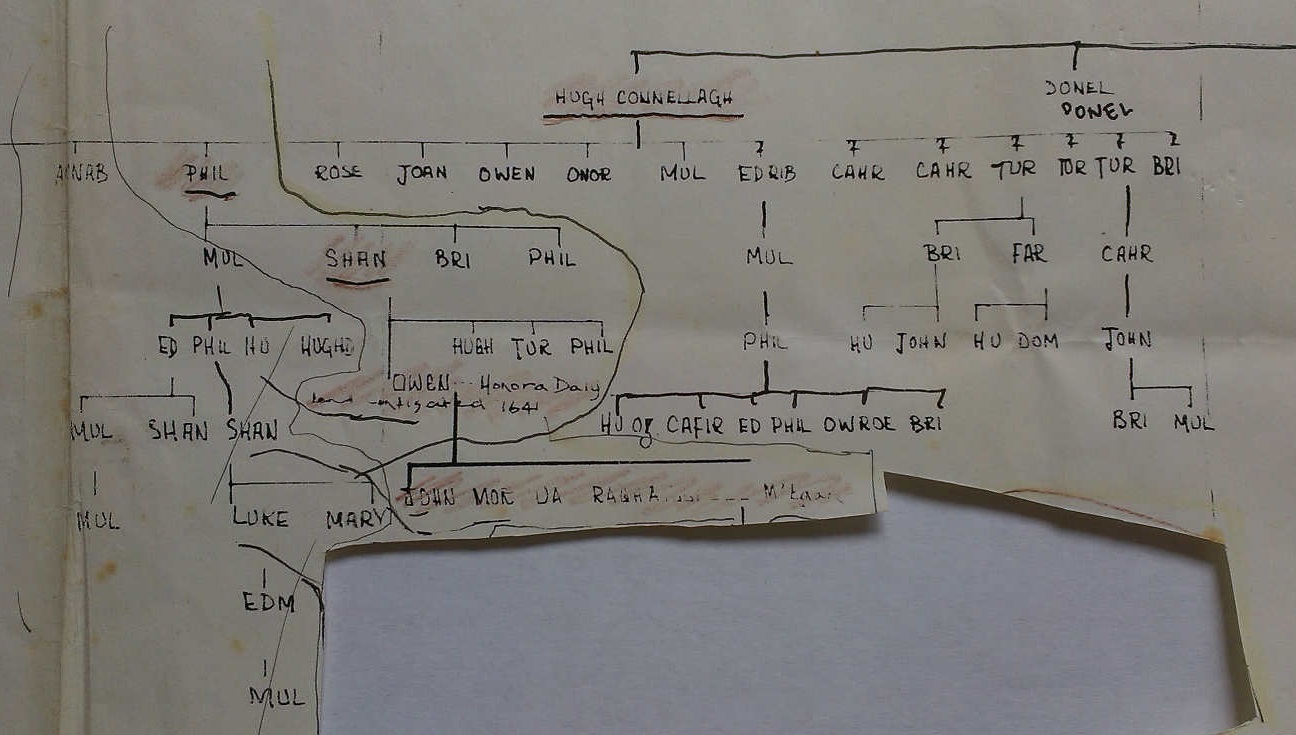 HUGH CONNELLAGH
DONEL
DONEL
PHIL ROSE JOAN OWEN ONOR MUL EDRIB CAHR CAHR TUR TUR TUR BRI
MUL SHAN BRI PHIL MUL BRI FAR CAHR
ED PHIL HU HUGHD HUGH TUR PHIL PHIL HU JOHN HU DOM JOHN
OWEN --- Honora Daly
1641
MUL SHAN SHAN HU Og CAFIR ED PHIL OWROE BRI BRI MUL
JOHN MOR UA
MUL LUKE MARY
EDM
MUL